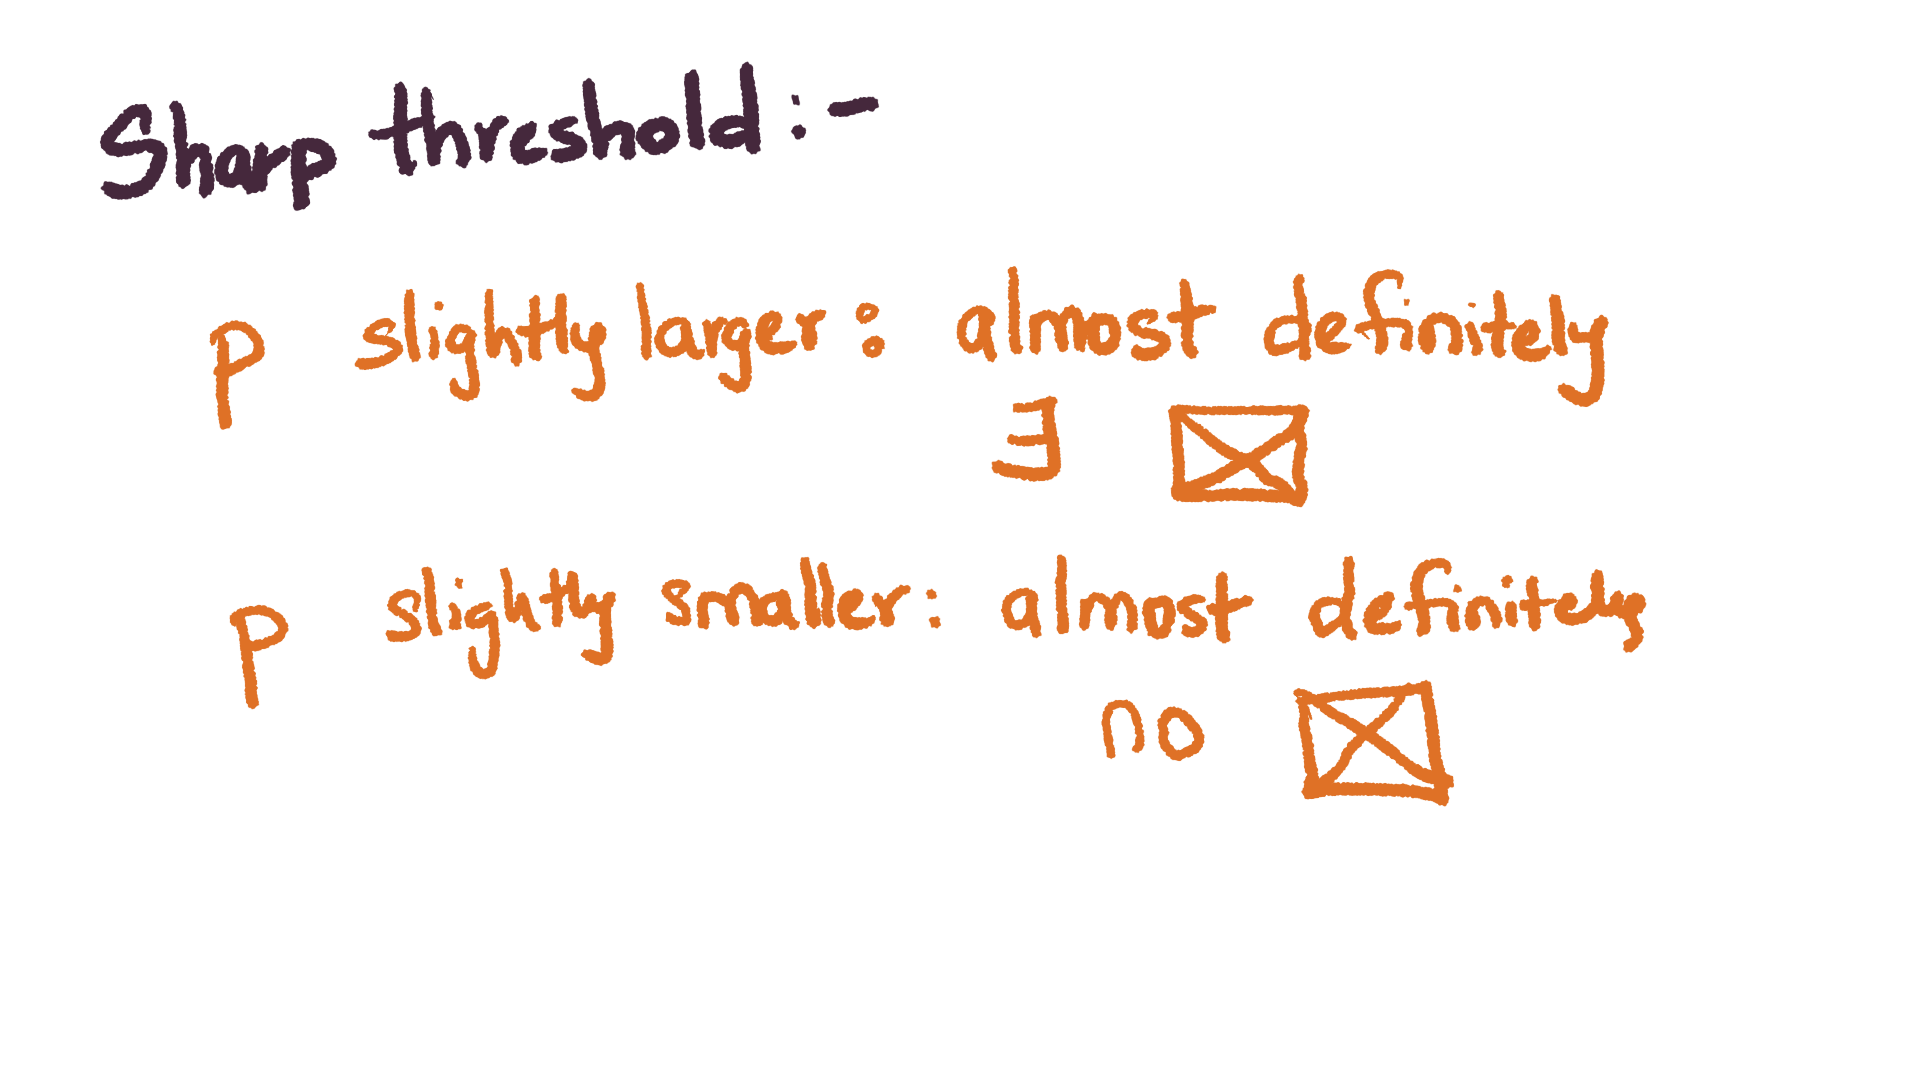 Sharp threshold:-
p slightly larger: almost definitely
∃
p slightly smaller: almost definitely
no